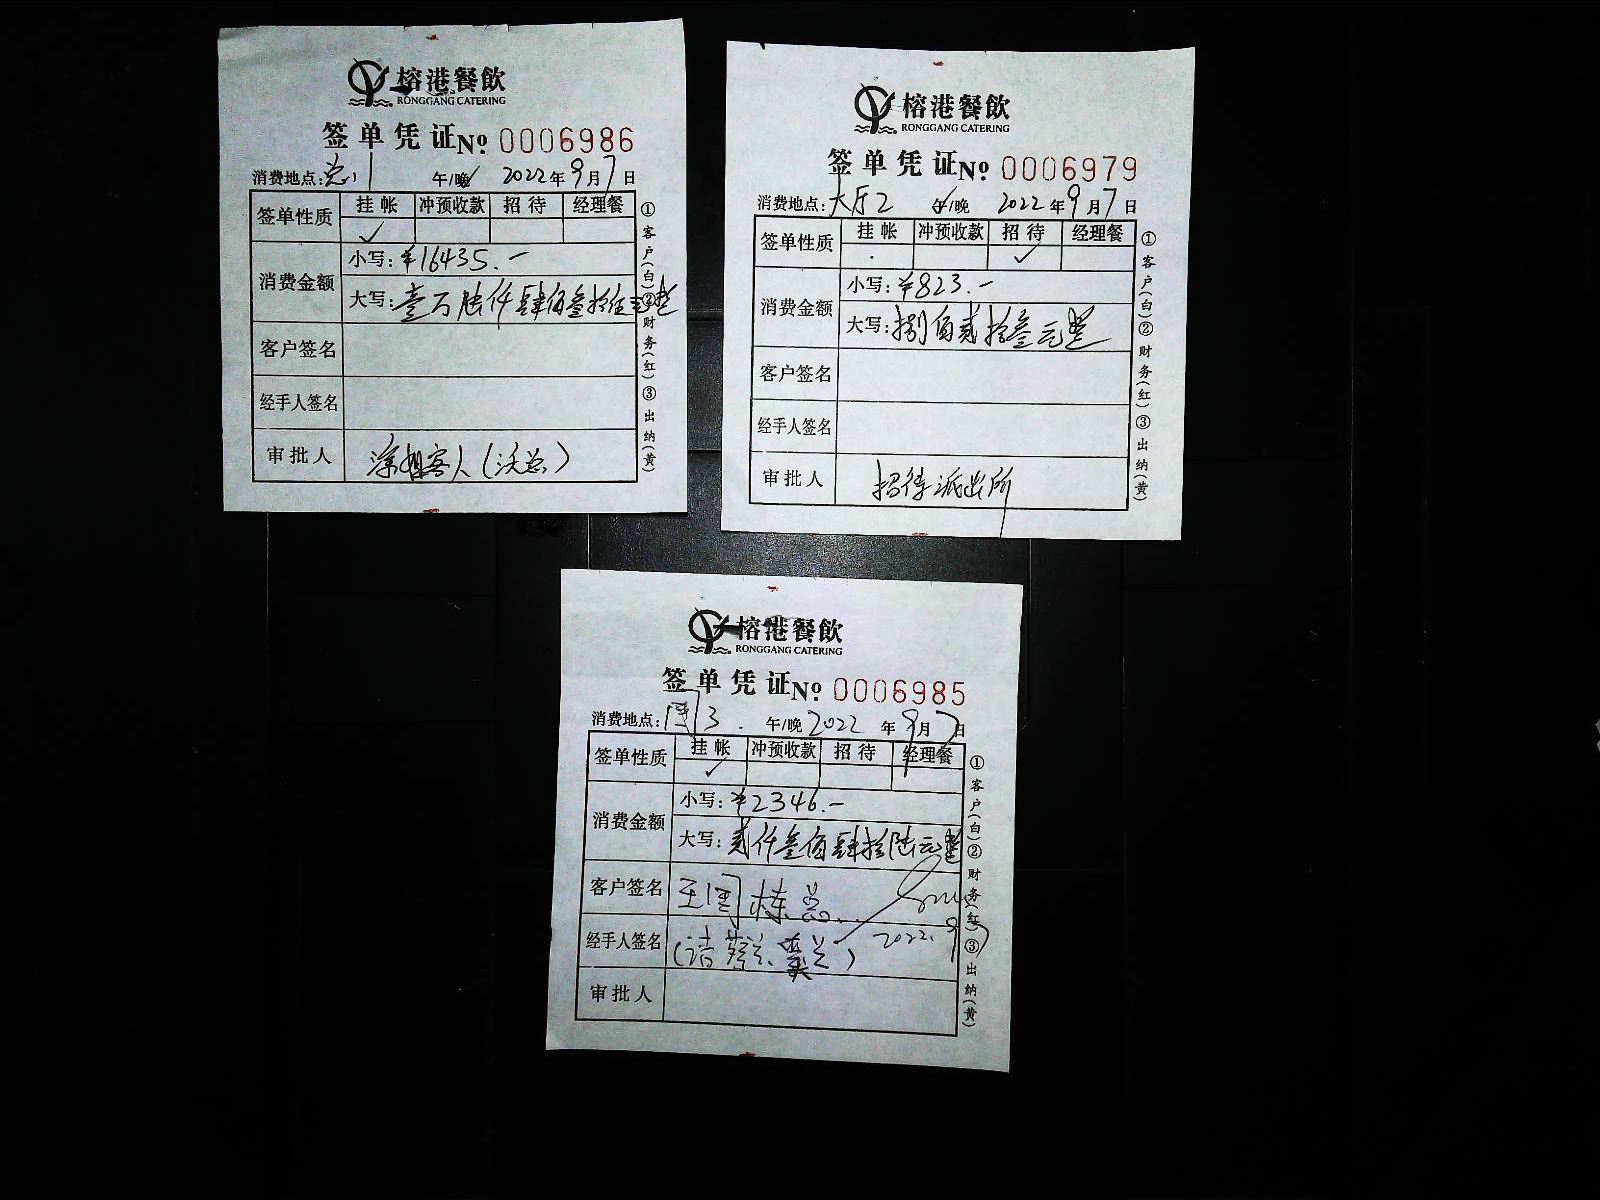 榕港餐飲
RONGGANG CATERING
签单凭证 No 0006986
消费地点: 总1 午/晚 2022年9月7日
签单性质 挂帐 冲预收款 招待 经理餐
✓
消费金额 小写: ¥16435.一
大写: 壹万陆仟肆佰叁拾伍元整
客户签名
经手人签名
审批人 客人(沃总)
①客户(白)②财务(红)③出纳(黄)
榕港餐飲
RONGGANG CATERING
签单凭证 No 0006979
消费地点: 大厅2 午/晚 2022年9月7日
签单性质 挂帐 冲预收款 招待 经理餐
✓
消费金额 小写: ¥823.一
大写: 捌佰贰拾叁元整
客户签名
经手人签名
审批人 招待派出所
①客户(白)②财务(红)③出纳(黄)
榕港餐飲
RONGGANG CATERING
签单凭证 No 0006985
消费地点: 国3. 午/晚 2022年9月7日
签单性质 挂帐 冲预收款 招待 经理餐
✓
消费金额 小写: ¥2346.一
大写: 贰仟叁佰肆拾陆元整
客户签名 王国栋总
经手人签名 2022.9.7
审批人
①客户(白)②财务(红)③出纳(黄)